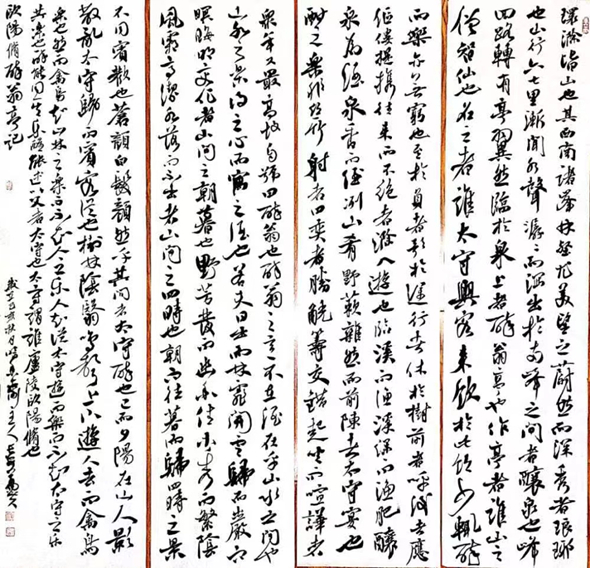 環滁皆山也其西南諸峰林壑尤美望之蔚然而深秀者琅琊
也山行六七里漸聞水聲潺潺而瀉出於兩峰之間者釀泉也峰
回路轉有亭翼然臨於泉上者醉翁亭也作亭者誰山之
僧智仙也名之者誰太守與客來飲於此飲少輒醉
而樂亦無窮也至於負者歌於途行者休於樹前者呼後者應
傴僂提攜往來而不絕者滁人遊也臨溪而漁溪深而漁肥釀
泉為酒泉香而酒洌山肴野蔌雜然而前陳者太守宴也
酣之樂非絲竹射者中弈者勝觥籌交錯起坐而喧譁者
年又最高故自號曰醉翁也醉翁之意不在酒在乎山水之間也
山水之樂得之心而寓之酒也若夫日出而林霏開雲歸而巖穴
暝晦明變化者山間之朝暮也野芳發而幽香佳木秀而繁陰
風霜高潔水落而石出者山間之四時也朝而往暮而歸四時之景
不同賓歡也蒼顏白髮頹然乎其間者太守醉也已而夕陽在山人影
散亂太守歸而賓客從也樹林陰翳鳴聲上下遊人去而禽鳥
樂也然而禽鳥知山林之樂而不知人之樂人知從太守遊而樂而不知太守之樂
其樂也醉能同其樂醒能述以文者太守也太守謂誰廬陵歐陽脩也
歐陽脩醉翁亭記